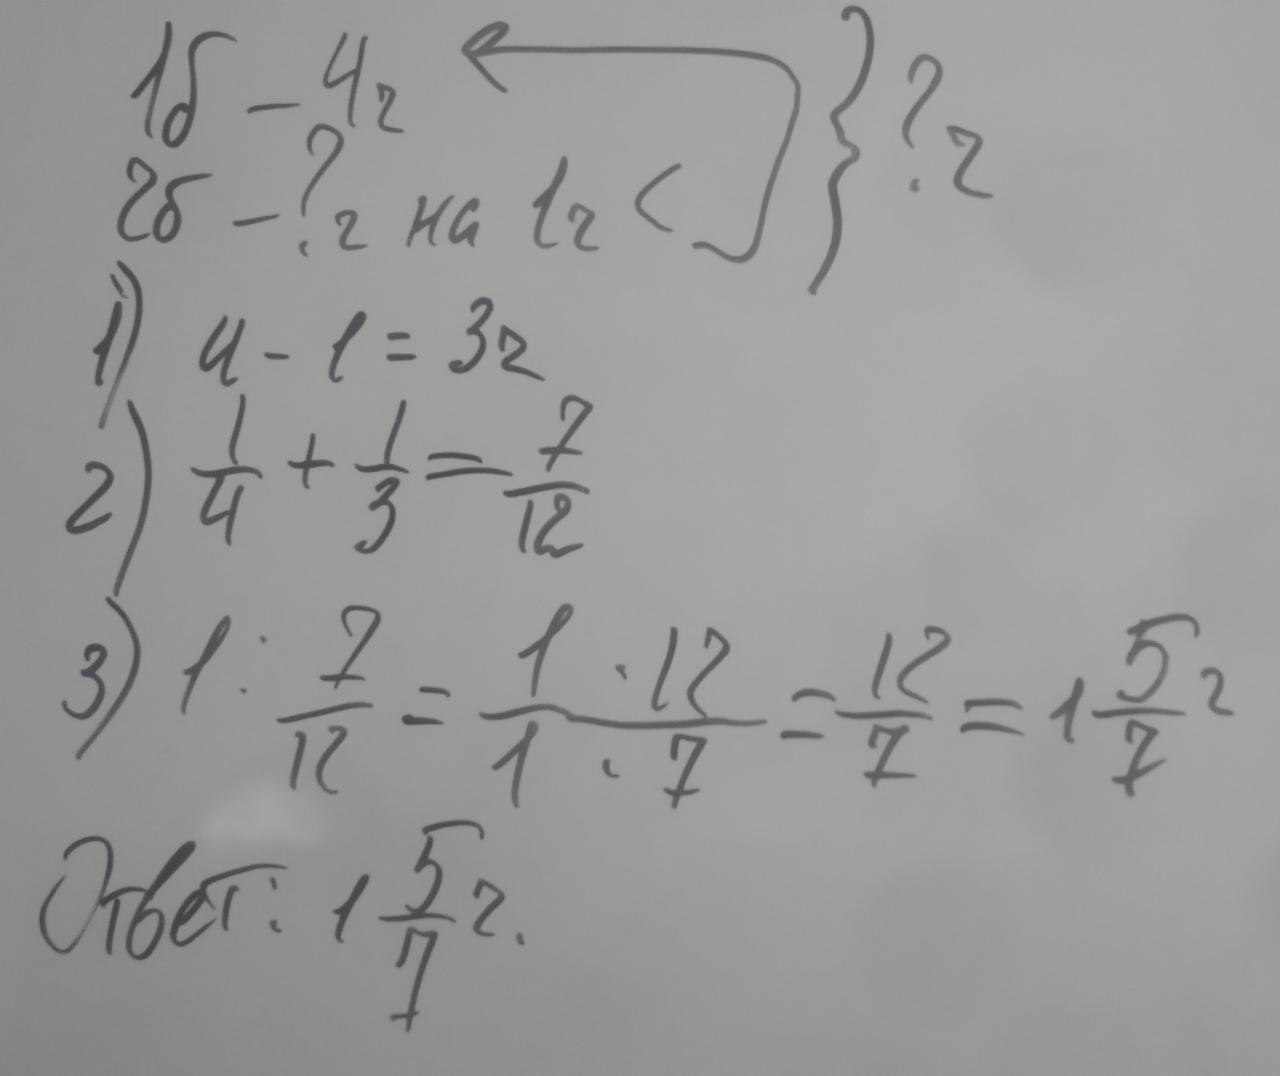 1б – 4г } ? г
2б – ? г на 1г <
1) 4 - 1 = 3г
2) 1/4 + 1/3 = 7/12
3) 1 : 7/12 = 1 · 12 / 1 · 7 = 12/7 = 1 5/7 г
Ответ: 1 5/7 г.